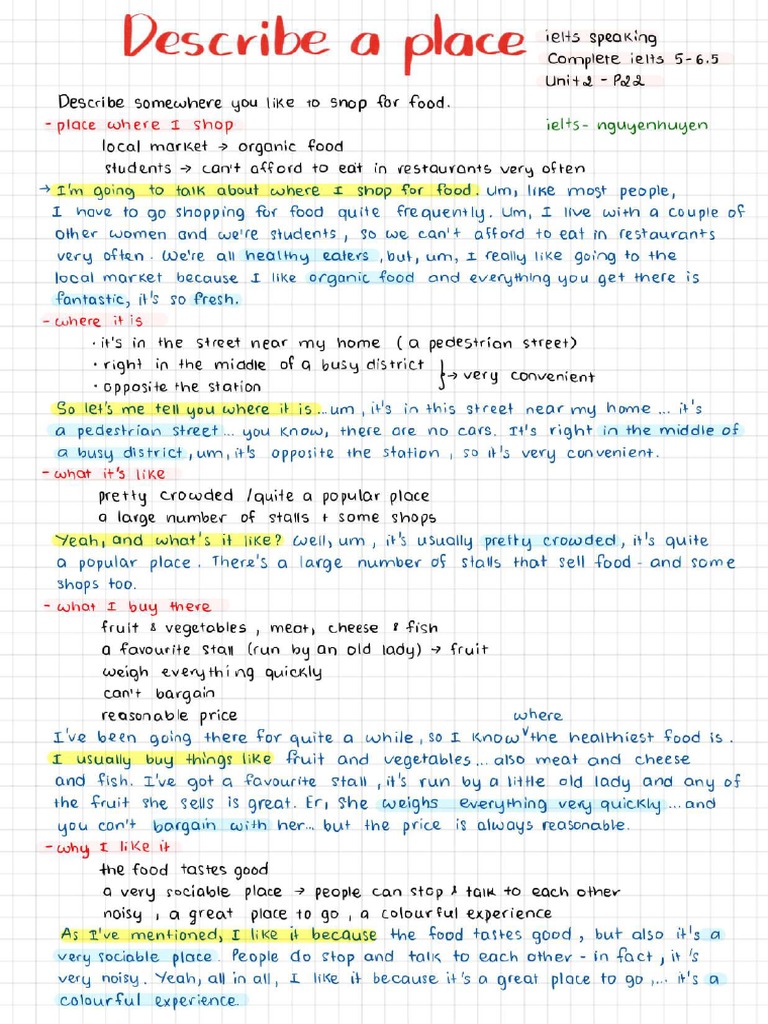 Describe a place
ielts speaking
Complete ielts 5-6.5
Unit 2 - P22
Describe somewhere you like to shop for food.
- place where I shop
ielts- nguyenhuyen
local market → organic food
students → can't afford to eat in restaurants very often
→ I'm going to talk about where I shop for food. Um, like most people,
I have to go shopping for food quite frequently. Um, I live with a couple of
other women and we're students, so we can't afford to eat in restaurants
very often. We're all healthy eaters, but, um, I really like going to the
local market because I like organic food and everything you get there is
fantastic, it's so fresh.
- where it is
· it's in the street near my home (a pedestrian street)
· right in the middle of a busy district
· opposite the station
} → very convenient
So let's me tell you where it is... um, it's in this street near my home ... it's
a pedestrian street... you know, there are no cars. It's right in the middle of
a busy district, um, it's opposite the station, so it's very convenient.
- what it's like
pretty crowded / quite a popular place
a large number of stalls + some shops
Yeah, and what's it like? Well, um, it's usually pretty crowded, it's quite
a popular place. There's a large number of stalls that sell food - and some
shops too.
- what I buy there
fruit & vegetables, meat, cheese & fish
a favourite stall (run by an old lady) → fruit
weigh everything quickly
can't bargain
reasonable price
where
I've been going there for quite a while, so I know ᵛ the healthiest food is.
I usually buy things like fruit and vegetables... also meat and cheese
and fish. I've got a favourite stall, it's run by a little old lady and any of
the fruit she sells is great. Er, she weighs everything very quickly ... and
you can't bargain with her... but the price is always reasonable.
- why I like it
the food tastes good
a very sociable place → people can stop & talk to each other
noisy, a great place to go, a colourful experience
As I've mentioned, I like it because the food tastes good, but also it's a
very sociable place. People do stop and talk to each other - in fact, it's
very noisy. Yeah, all in all, I like it because it's a great place to go,... it's a
colourful experience.